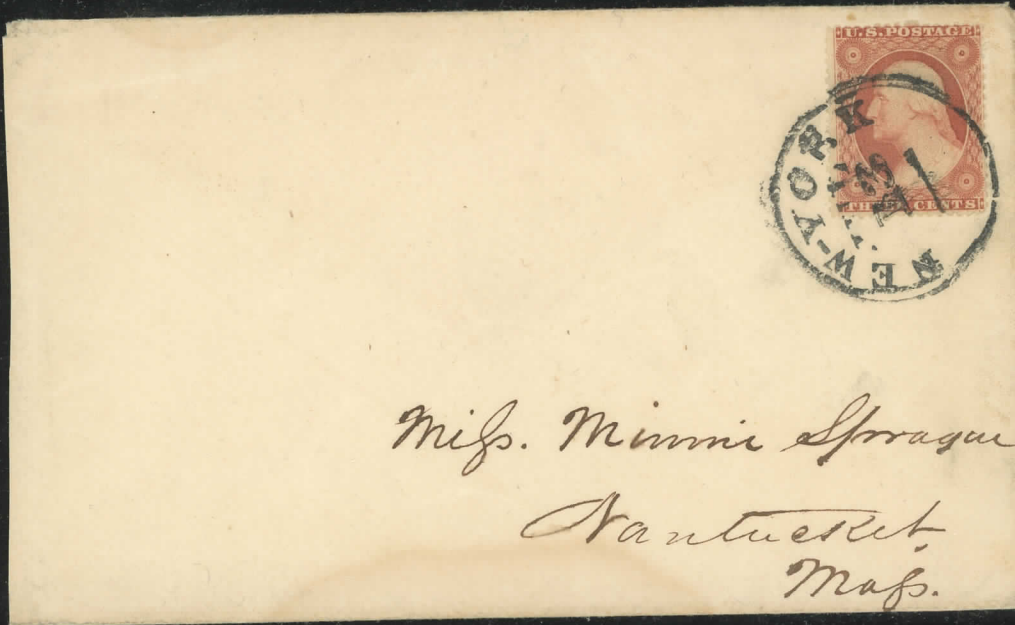 U.S. POSTAGE
THREE CENTS
NEW-YORK
Miſs. Minnie Sprague
Nantucket,
Maſs.